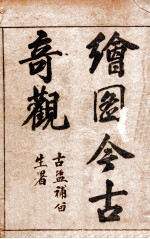 繪圖今古
奇觀
古盐補留
生署